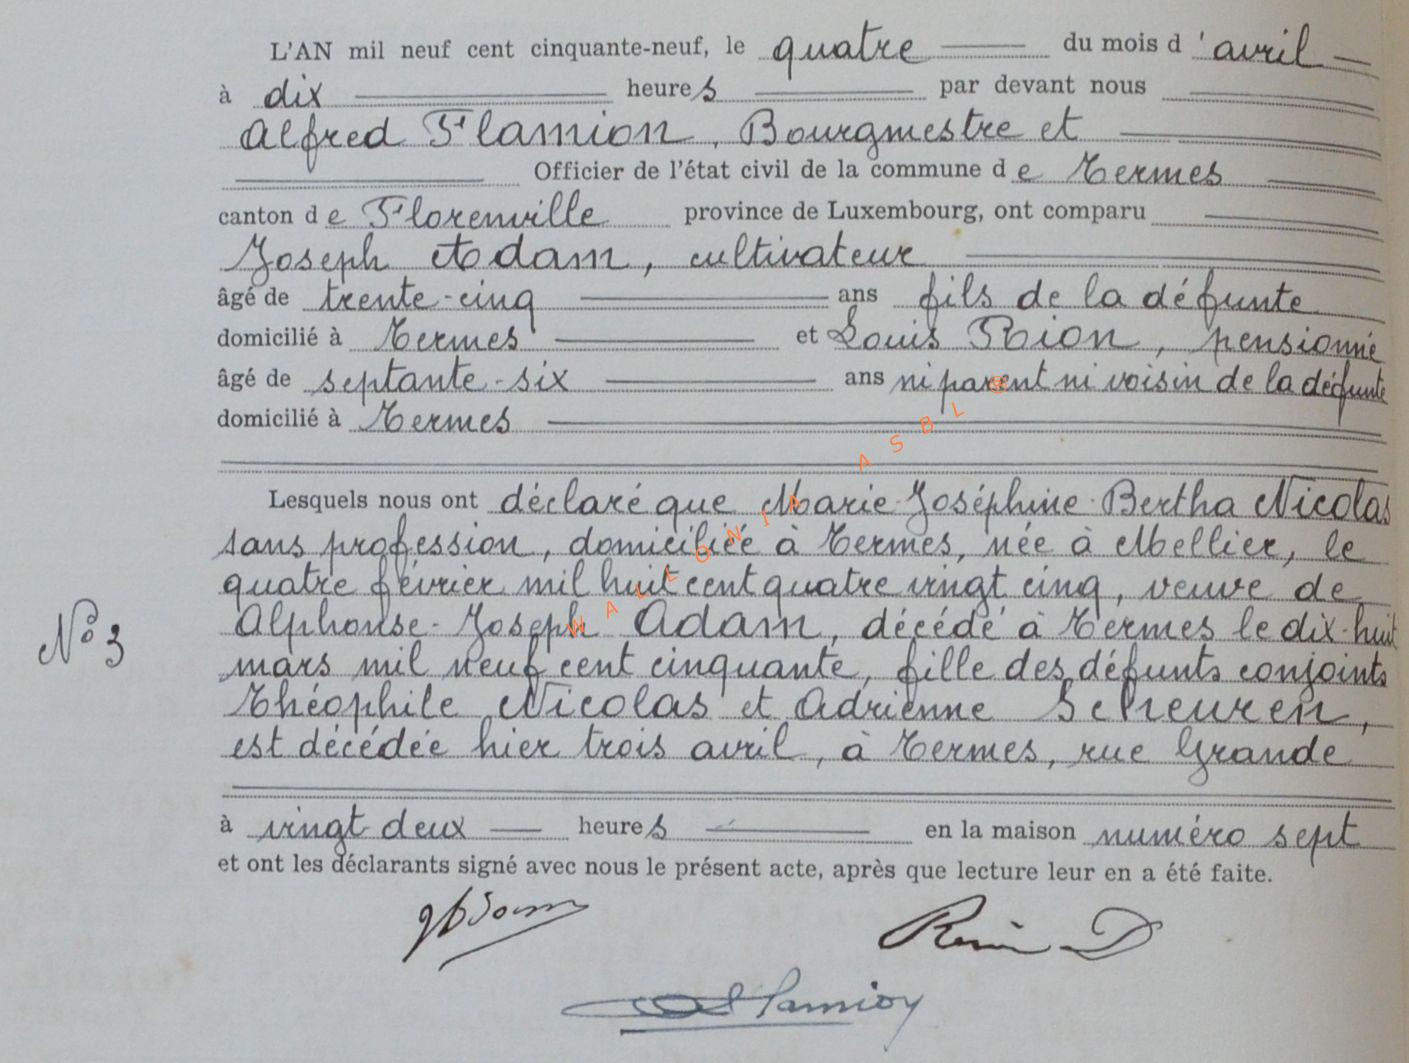 L'AN mil neuf cent cinquante-neuf, le quatre du mois d'avril
à dix heures par devant nous
Alfred Flamion, Bourgmestre et
Officier de l'état civil de la commune de Termes
canton de Florenville province de Luxembourg, ont comparu
Joseph Adam, cultivateur
âgé de trente-cinq ans fils de la défunte
domicilié à Termes et Louis Rion, pensionné
âgé de septante-six ans ni parent ni voisin de la défunte
domicilié à Termes
Lesquels nous ont déclaré que Marie-Joséphine-Bertha Nicolas
sans profession, domiciliée à Termes, née à Mellier, le
quatre février mil huit cent quatre vingt cinq, veuve de
Alphonse-Joseph Adam, décédé à Termes le dix-huit
N° 3
mars mil neuf cent cinquante, fille des défunts conjoints
Théophile Nicolas et Adrienne Scheuren,
est décédée hier trois avril, à Termes, rue Grande
à vingt deux heures en la maison numéro sept
et ont les déclarants signé avec nous le présent acte, après que lecture leur en a été faite.
Flamion
WALLONIA ASBL ©